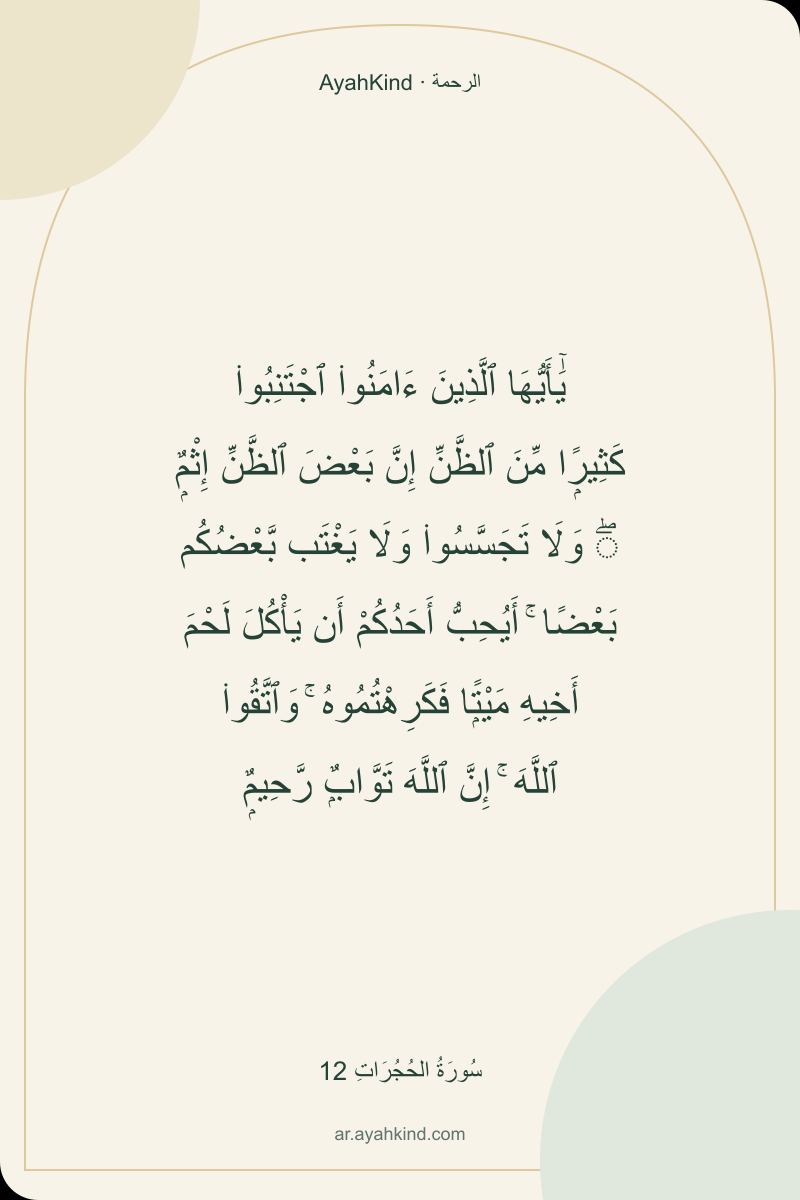 AyahKind · الرحمة
يَٰٓأَيُّهَا ٱلَّذِينَ ءَامَنُوا۟ ٱجْتَنِبُوا۟
كَثِيرًۭا مِّنَ ٱلظَّنِّ إِنَّ بَعْضَ ٱلظَّنِّ إِثْمٌۭ
ۖ وَلَا تَجَسَّسُوا۟ وَلَا يَغْتَب بَّعْضُكُم
بَعْضًا ۚ أَيُحِبُّ أَحَدُكُمْ أَن يَأْكُلَ لَحْمَ
أَخِيهِ مَيْتًۭا فَكَرِهْتُمُوهُ ۚ وَٱتَّقُوا۟
ٱللَّهَ ۚ إِنَّ ٱللَّهَ تَوَّابٌۭ رَّحِيمٌۭ
سُورَةُ الحُجُرَاتِ 12
ar.ayahkind.com